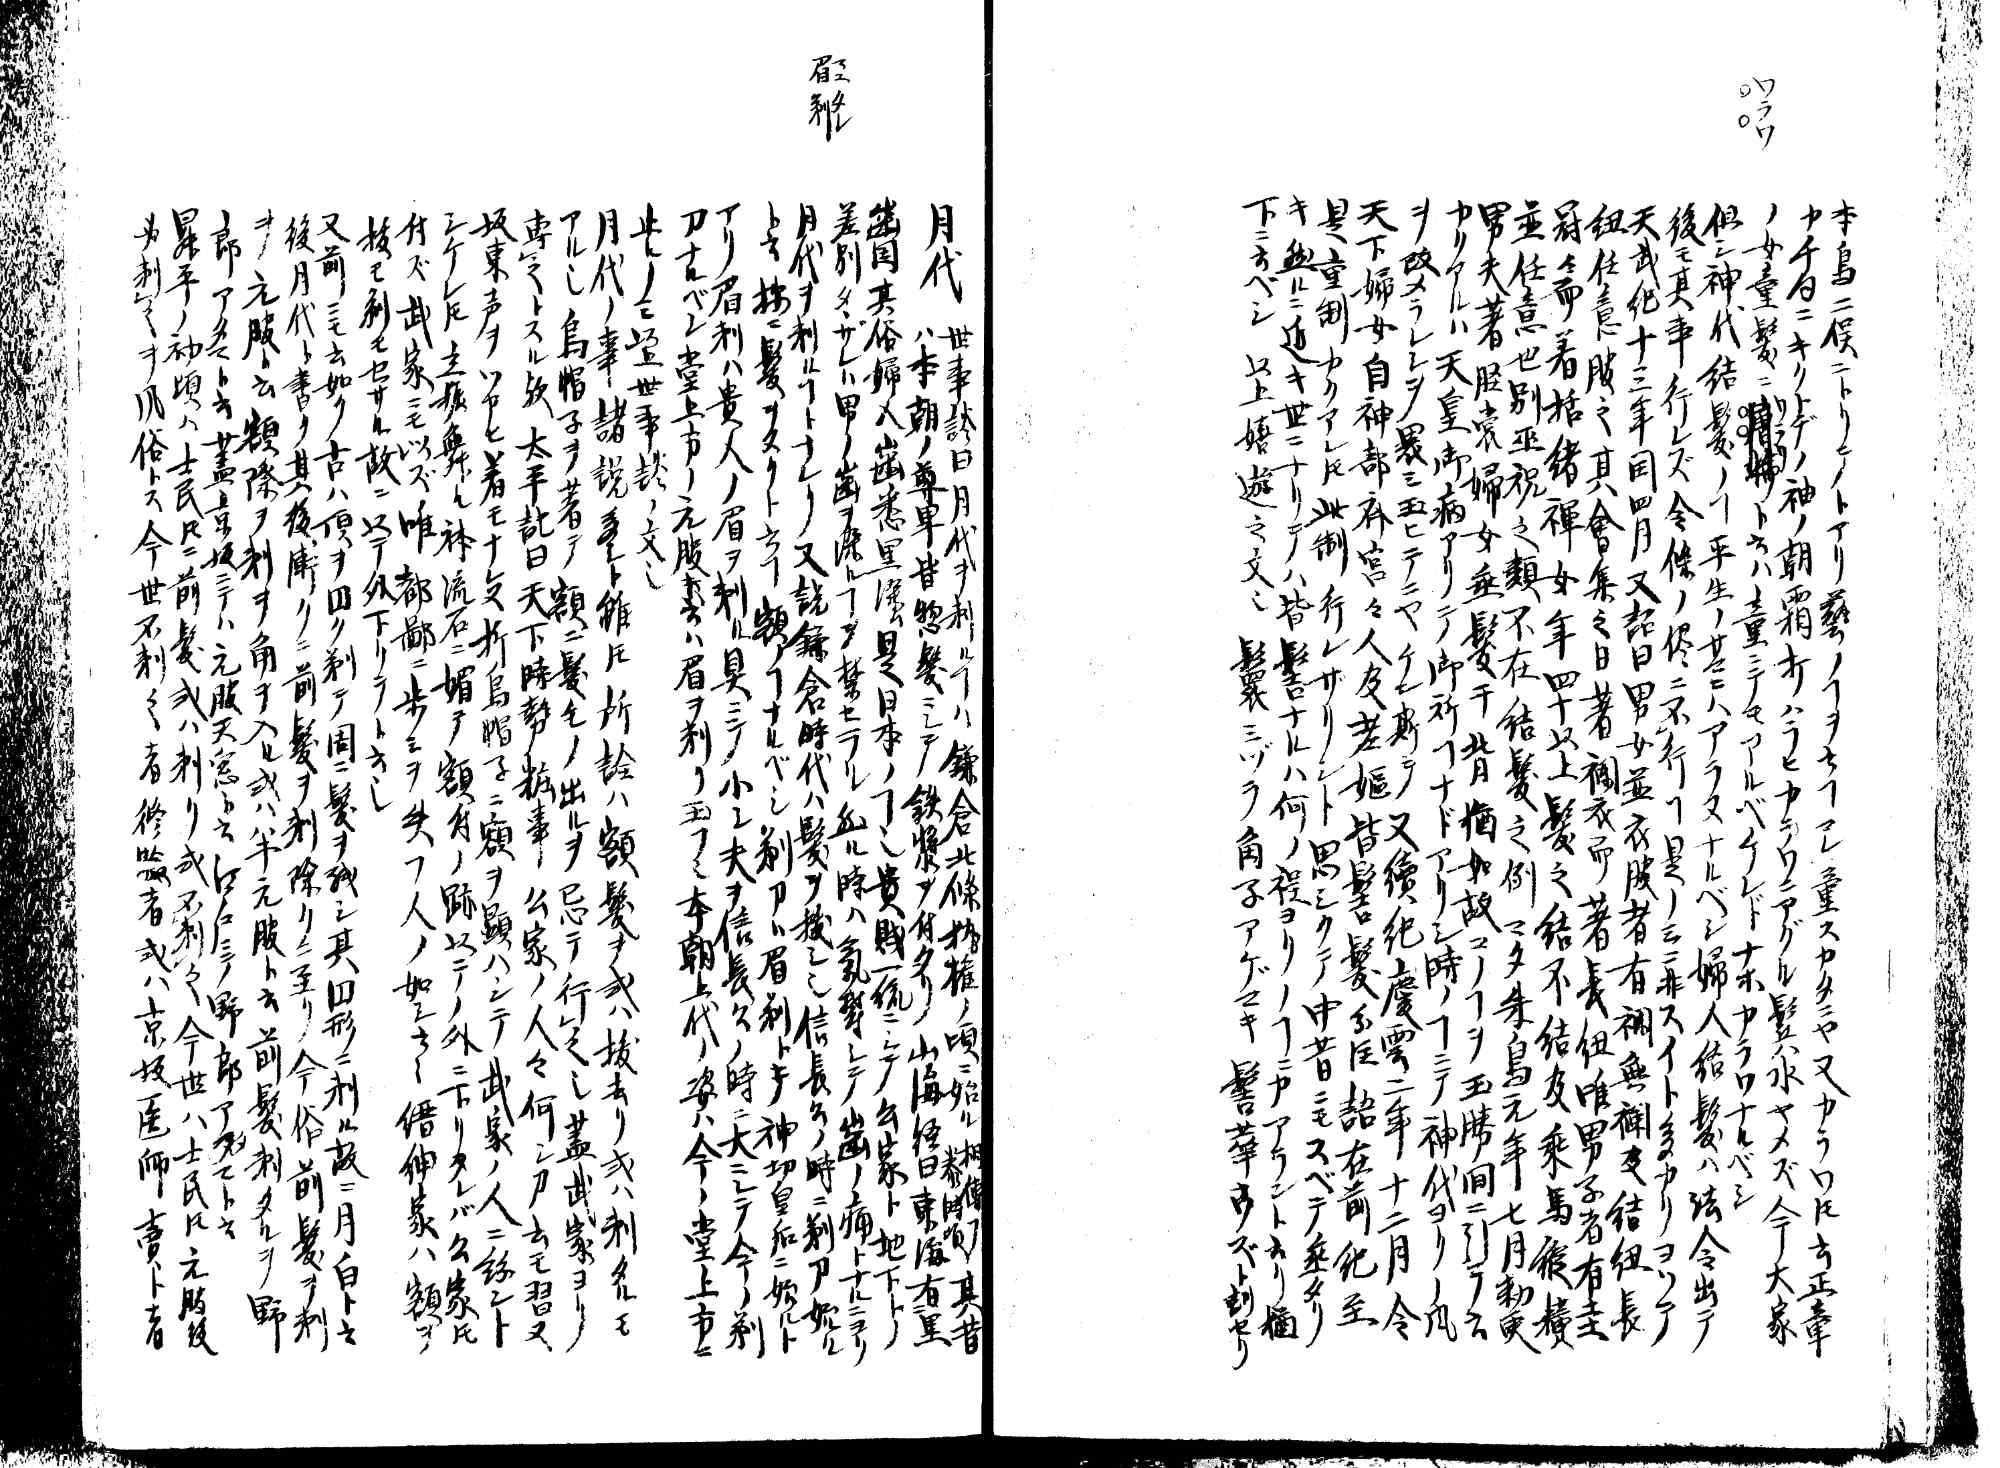 ワラワ
本鳥ニ侯ニトリモノトアリ藝ノヿヲ云ヿマレ童スカタニヤ又カラワ𪜈云正章
カ千句ニキリトデノ神ノ朝霜オハラヒカラワニアグル鬢水ヤメズ今大家
ノ女童髪ニ ト云ハ童ミテモアルベケレドナホカラワナルベシ
但シ神代結髪ノヿ平生ノサマニハアラヌナルベシ婦人結髪ハ法令出テ
後モ其事行レズ令條ノ侭ニ不行ヿ是ノミニ非スイト多カリヨツテ
天武紀十三年閏四月又詔曰男女並衣服者有襴無襴及結紐長
紐任意服之其會集之日著襴衣而著長紐唯男子者有圭
冠々而着括緒褌女年四十以上髪之結不結及乗馬縦横
並任意也別巫祝之類不在結髪之例 マタ朱鳥元年七月勅更
男夫著脛裳婦女垂髪于背猶如故コノヿヲ玉勝間ニ引テ云
カリアルハ天皇御病アリテ御祈ヿナドアリシ時ノヿニテ神代ヨリノ風
ヲ改メラレシヲ畏ミ玉ヒテニヤケレ斯テ又續紀慶雲二年十二月令
天下婦女自神部斎宮々人及老嫗皆髻髪分注語在前紀至
是重制カクアレ𪜈此制行レザリシト思シクテ中昔ニモスベテ垂タリ
キ然ルニ近キ世ニナリテハ皆髻ナルハ何ノ禔ヨリノヿニカアラント云リ猶
下ニ云ベシ 以上嬉遊之文也 鬟ミヅラ角子アゲマキ 髻華ウズト訓セリ
眉剃 マユタレ
月代 世事談曰月代ヲ剃ルヿハ鎌倉北條執権ノ頃ニ始ル相傳フ泰時頃其昔
ハ本朝ノ尊卑皆惣髪ニシテ鉄漿ヲ付タリ山海経曰東海有黒
歯国其俗婦人歯悉黒染是日本ノヿ也貴賎一統ニシテ公家ト地下トノ
差別タヽザレハ甲ノ歯ヲ染ルヿヲ禁セラル 然ル時ハ氣欝シテ歯ノ痛トナルニヨリ
月代ヲ剃ルヿトナレリ又説鎌倉時代ハ髪ヲ抜シ也信長公ノ時ニ剃刀始ル
ト云按ニ髪ヲヌクト云ヿ額ノヿナルベシ剃刀ハ眉剃トキ神功皇后ニ始ルト
アリ眉剃ハ貴人ノ眉ヲ剃ル具ニテ小シ夫ヲ信長公ノ時ニ大ニシテ今ノ剃
刀ナルベシ堂上方ノ元服ト云ハ眉ヲ剃リ玉フ也本朝上代ノ姿ハ今ノ堂上方ニ
此ルノミ以上世事談ノ文也
月代ノ事諸説多シト雖𪜈所詮ハ額髪ヲ或ハ抜去リ或ハ剃タルモ
アルし烏帽子ヲ著テ額ニ髪モノ出ルヲ忌テ行シ也蓋武家ヨリ
専ラトスル欤 太平記曰天下時勢粧事 公家ノ人々何シカ云モ習又
坂東声ヲツカヒ着モナレ又折烏帽子ニ額ヲ顕ハシテ武家ノ人ニ紛ント
シケレ𪜈立振舞ル袴流石ニ媚テ額付ノ跡以テノ外ニ下リタレバ公家𪜈
付ズ武家ニモ似ズ唯都鄙ニ歩ミヲ失フ人ノ如シ云々 縉紳家ハ額ヲ
抜モ剃モセザル故ニ以テ外下リテト云し
又前ニモ云如ク古ハ頂ヲ四ク剃テ周ニ髪ヲ残シ其四形ニ剃ル故ニ月白ト云
後月代ト書ク其後漸クニ前髪ヲ剃除クニ至リ今俗前髪ヲ剃
ヲ元服ト云額際ヲ剃ヲ角ヲ入ル或ハ半元服ト云前髪剃タルヲ野
郎アタマト云蓋京坂ニテハ元服天窓ト云江戸ニテ野郎アタマト云
昇平ノ初頃ハ士民𪜈ニ前髪或ハ剃リ或不剃々今世ハ士民𪜈元服後
必剃之ヲ風俗トス今世不剃之者修験者或ハ京坂医師 賣卜者